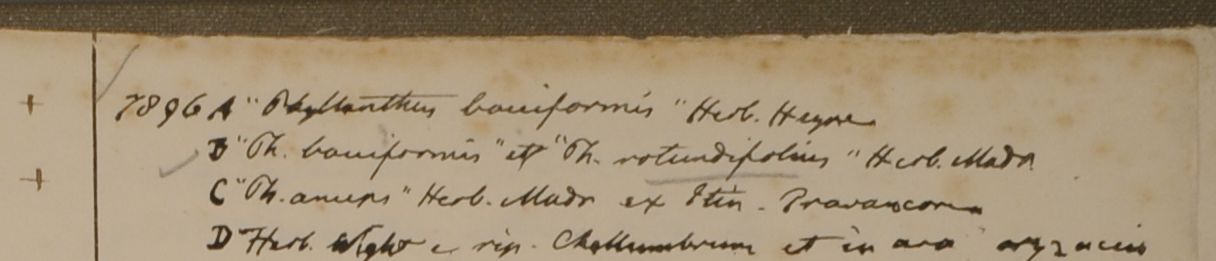 7896 A "Phyllanthus bacciformis" Herb. Heyne
B "Ph. bacciformis" et "Ph. rotundifolius" Herb. Madr
C "Ph. anceps" Herb. Madr ex Itin. Travancore
D Herb. Wight e rip. et in oryzaceis